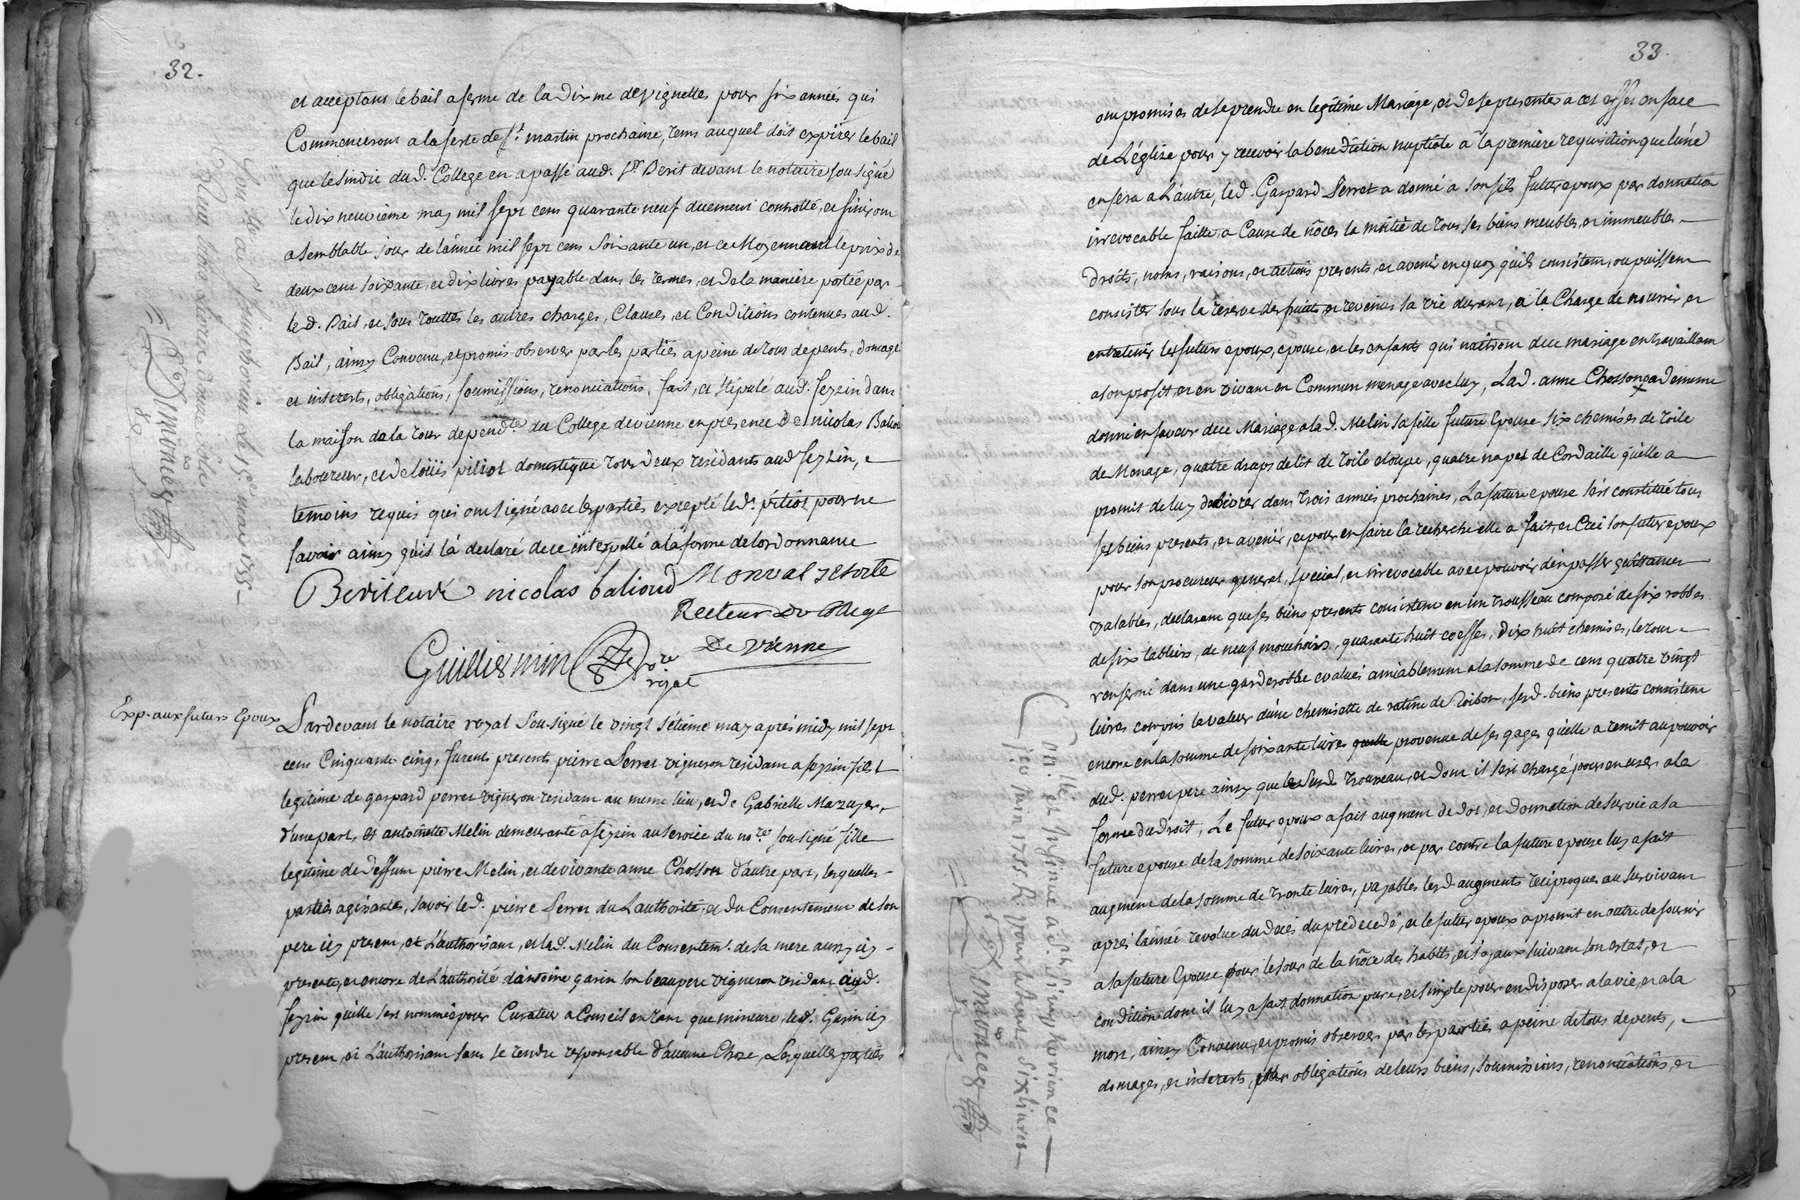 32.
et acceptant le bail a ferme de la dixme de vignettes pour six années qui
Commenceront a la feste de St. martin prochaine, tems auquel doit expirer le bail
que le sindic du d. College en a passé aud. Sr. Berit devant le notaire sousigné
le dix neuvieme may mil sept cens quarante neuf duement controllé, et finiront
a semblable jour de l'année mil sept cens soixante un, et ce Moyennant le prix de
deux cens soixante, et dix livres payable dans les termes, et de la maniere portée par
le d. Bail, et sous touttes les autres charges, Clauses, et Conditions contenues aud.
Bail, ainsy Convenu, et promis observer par les parties a peine de tous depents, domages
et interets, obligations, soumissions, renonciations, fait, et stipulé aud. seyzin dans
la maison de la tour dépendte. du College de vienne en presence de nicolas Balioud
laboureur, et de loüis pitiot domestique tous deux residants aud seyzin,
temoins requis qui ont signé avec les parties excepté led. pitiot pour ne
savoir ainsy qu'il l'a declaré de ce interpellé a la forme de l'ordonnance
nicolas balioud
Recteur du College
De vienne
Guillermin
nore
royal
Exp. aux futurs Epoux
Pardevant le notaire royal sousigné le vingt sétième may après midy mil sept
cens Cinquante cinq, furent presents pierre Perret vigneron residant a seyzin fils
legitime de gaspard perret vigneron residant au meme lieu, et de Gabrielle Mazuyer,
d'une part, et antoinette Melin demeurante a seyzin au service du nore sousigné fille
legitime de deffunt pierre Melin, et de vivante anne Chosson d'autre part, lesquelles
parties agissantes, savoir led. pierre Perret du L'authorité, et du Consentement de son
pere icy present, et l'authorisant, et lad. Melin du Consentemt. de sa mere aussy icy
presente, et encore de l'authorité d'antoine garin son beaupere vigneron residant aud.
seyzin qu'elle s'est nommé pour Curateur a Conseil en tant que mineure led. Garin icy
present, et L'authorisant sans se rendre responsable d'aucune Chose, Lesquelles parties
33
ont promis de se prendre en legitime Mariage, et de se presenter a cet effet en face
de L'église pour y recevoir la benediction nuptiale a la première requisition que l'une
en fera a L'autre, led. Gaspard Perret a donné a son fils futur epoux par donnation
irrevocable faitte a Cause de nôces la moitié de tous ses biens meubles, et immeubles
droits, noms, raisons, et actions presents, et avenir en quoy qu'ils consistent, ou puissent
consister sous la reserve des fruits, et revenus sa vie durant, a la Charge de nourrir, et
entretenir les futurs epoux, epouse, et les enfants qui naitront de ce mariage en travaillant
a son profit et en vivant en Commun menage avec luy, Lad. anne Chosson a de meme
donné en faveur de ce Mariage a lad. Melin sa fille future Epouse six chemises de toile
de Menage, quatre draps de lit de toile etoupe, quatre napes de Cordaille qu'elle a
promit de luy delivrer dans trois années prochaines, La future epouse s'est constituée tous
ses biens presents, et avenir, et pour en faire la recherche elle a fait, et Créé son futur epoux
pour son procureur general, special, et irrevocable avec pouvoir d'en passer quittances
valables, declarant que ses biens presents consistent en un trousseau composé de six robbes
de six tabliers, de neuf mouchoirs, quarante huit coëffes, dix huit chemises, le tout
renfermé dans une garderobbe evalués amiablement a la somme de cens quatre vingt
livres compris la valeur d'une chemisette de ratine de Roibon, sesd. biens presents consistent
encore en la somme de soixante livres provenue de ses gages qu'elle a remit au pouvoir
dud. perret pere ainsy que le susd. trousseau, et dont il s'est chargé pour en user a la
forme du droit, Le futur epoux a fait augment de dot, et donnation de survie a sa
future epouse de la somme de soixante livres, et par contre la future epouse luy a fait
augment de la somme de trente livres, payables lesd. augments reciproques au survivant
après l'année revolue du decès du predecedé, et le futur epoux a promit en outre de fournir
a la future Epouse pour le jour de la nôce des habits, et joyaux suivant son estat, et
condition dont il luy a fait donnation pure, et simple pour en disposer a la vie, et a la
mort, ainsy Convenu, et promis observer par les parties a peine de tous depents,
domages, et interets, obligations de leurs biens, soumissions, renonciations, et